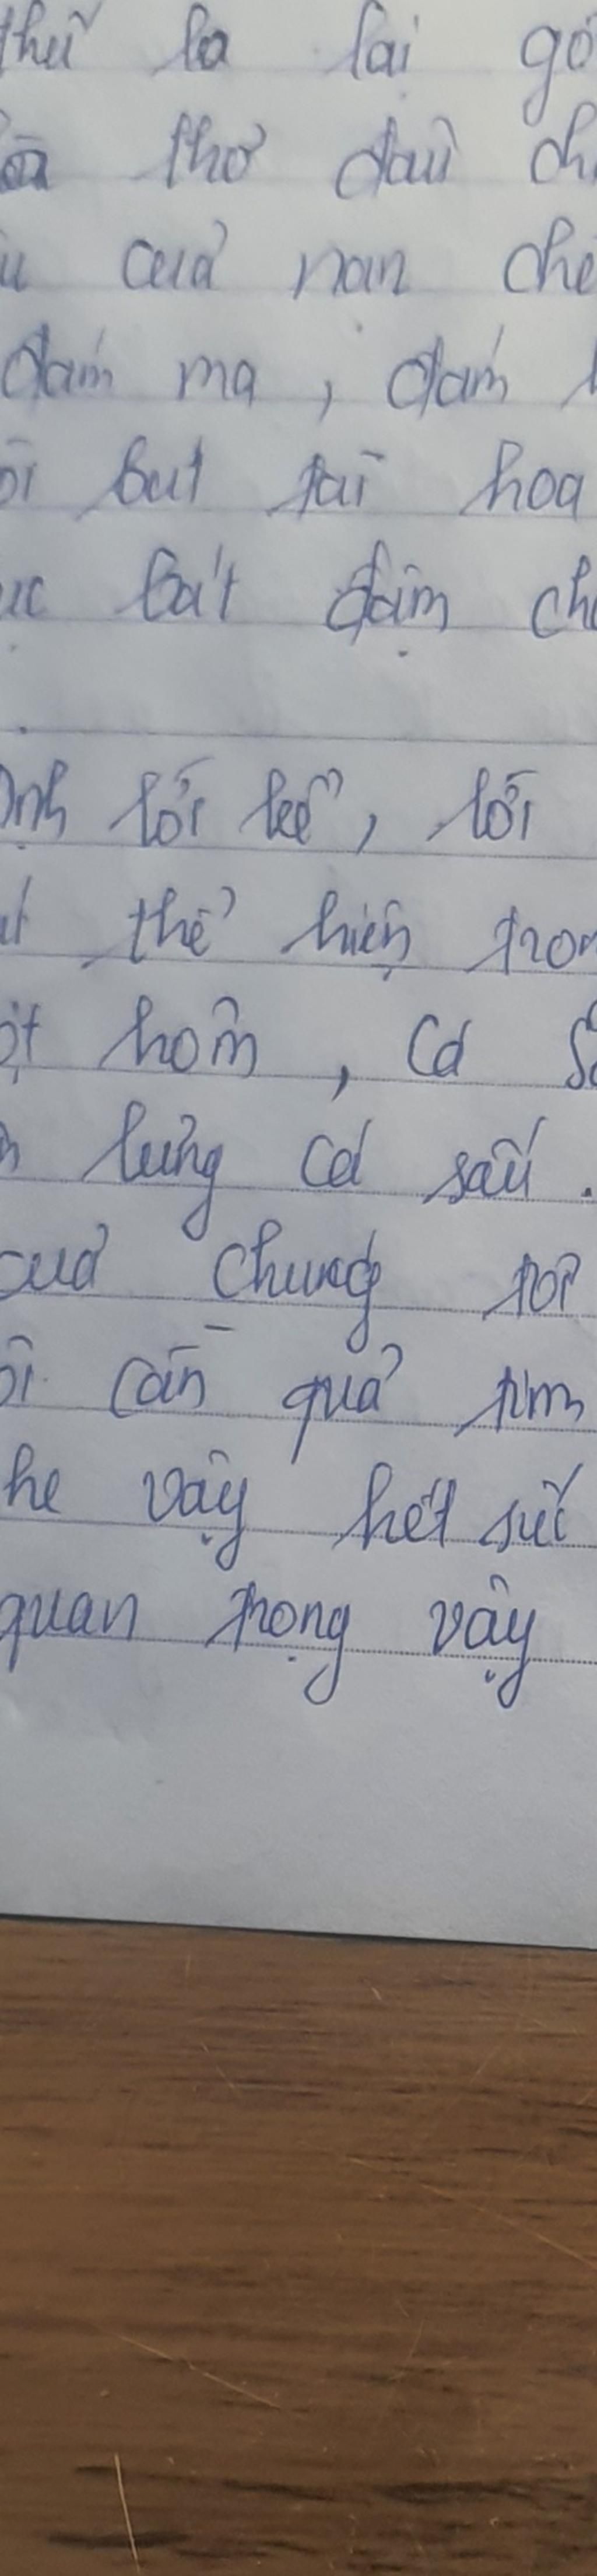 thứ la lại gó
thơ dài ch
u của nạn chê
đám ma, đám
ôi bút tài hoa
ục bát đậm ch
ịnh lối kể, lối
thể hiện tron
ột hôm, Cá S
lưng cá sấu.
của chúng tôi
ôi cần quả tim
he vậy hết sức
quan trọng vậy